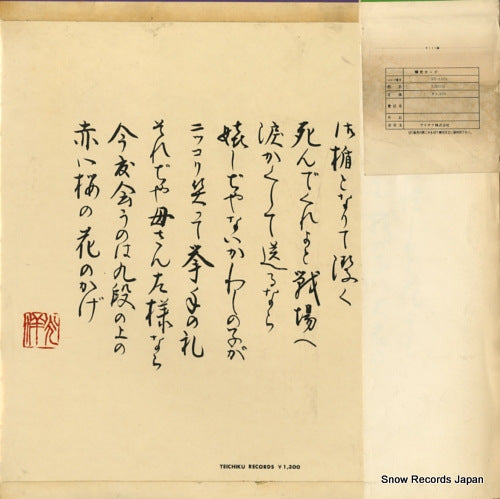 御楯となりて潔く
死んでくれよと戦場へ
涙かくして送るなら
嬉しじやないかわしの子が
ニッコリ笑って挙手の礼
それじや母さん左様なら
今度会うのは九段の上の
赤い桜の花のかげ
TEICHIKU RECORDS ¥1,300
Snow Records Japan